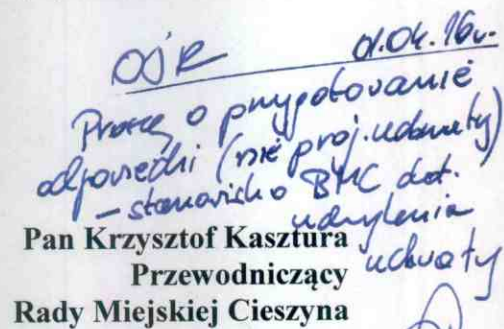 OŚR 01.04.16r.
Proszę o przygotowanie
odpowiedzi (nie proj. uchwały)
– stanowisko BMC dot.
uchylenia
uchwały
Pan Krzysztof Kasztura
Przewodniczący
Rady Miejskiej Cieszyna